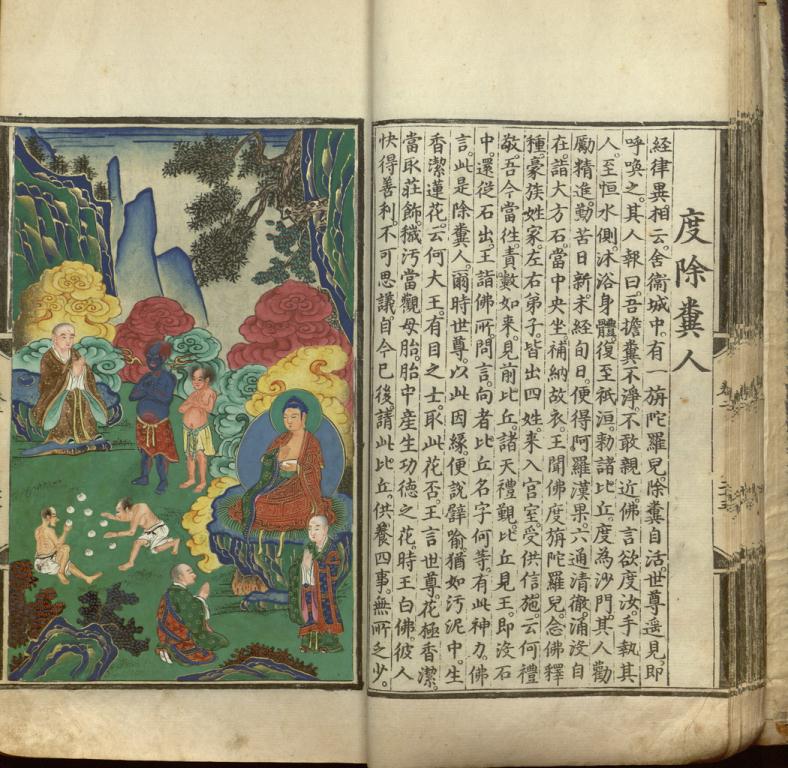 度除糞人
経律異相云。舍衛城中。有一旃陀羅兒。除糞自活。世尊遥見。即
呼喚之。其人報曰。吾擔糞不淨。不敢親近。佛言欲度汝。手執其
人。至恒水側。沐浴身體。復至祇洹。勅諸比丘。度為沙門。其人勸
勵精進。勤苦日新。未經旬日。便得阿羅漢果。六通清徹。涌没自
在。詣大方石。當中央坐。補納故衣。王聞佛度旃陀羅兒。念佛釋
種。豪族姓家。左右弟子。皆出四姓。來入官室。受供信施。云何禮
敬。吾今當徃責數如来。見前比丘。諸天禮覲。比丘見王。即没石
中。還從石出。王詣佛所。問言。向者比丘名字何等。有此神力。佛
言。此是除糞人。爾時世尊。以此因緣。便說譬喻。猶如污泥中。生
香潔蓮花。云何大王。有目之士。取此花否。王言世尊。花極香潔。
當取莊飾。穢污當觀母胎。胎中産生功德之花。時王白佛。彼人
快得善利。不可思議。自今已後。請此比丘。供養四事。無所乏少。